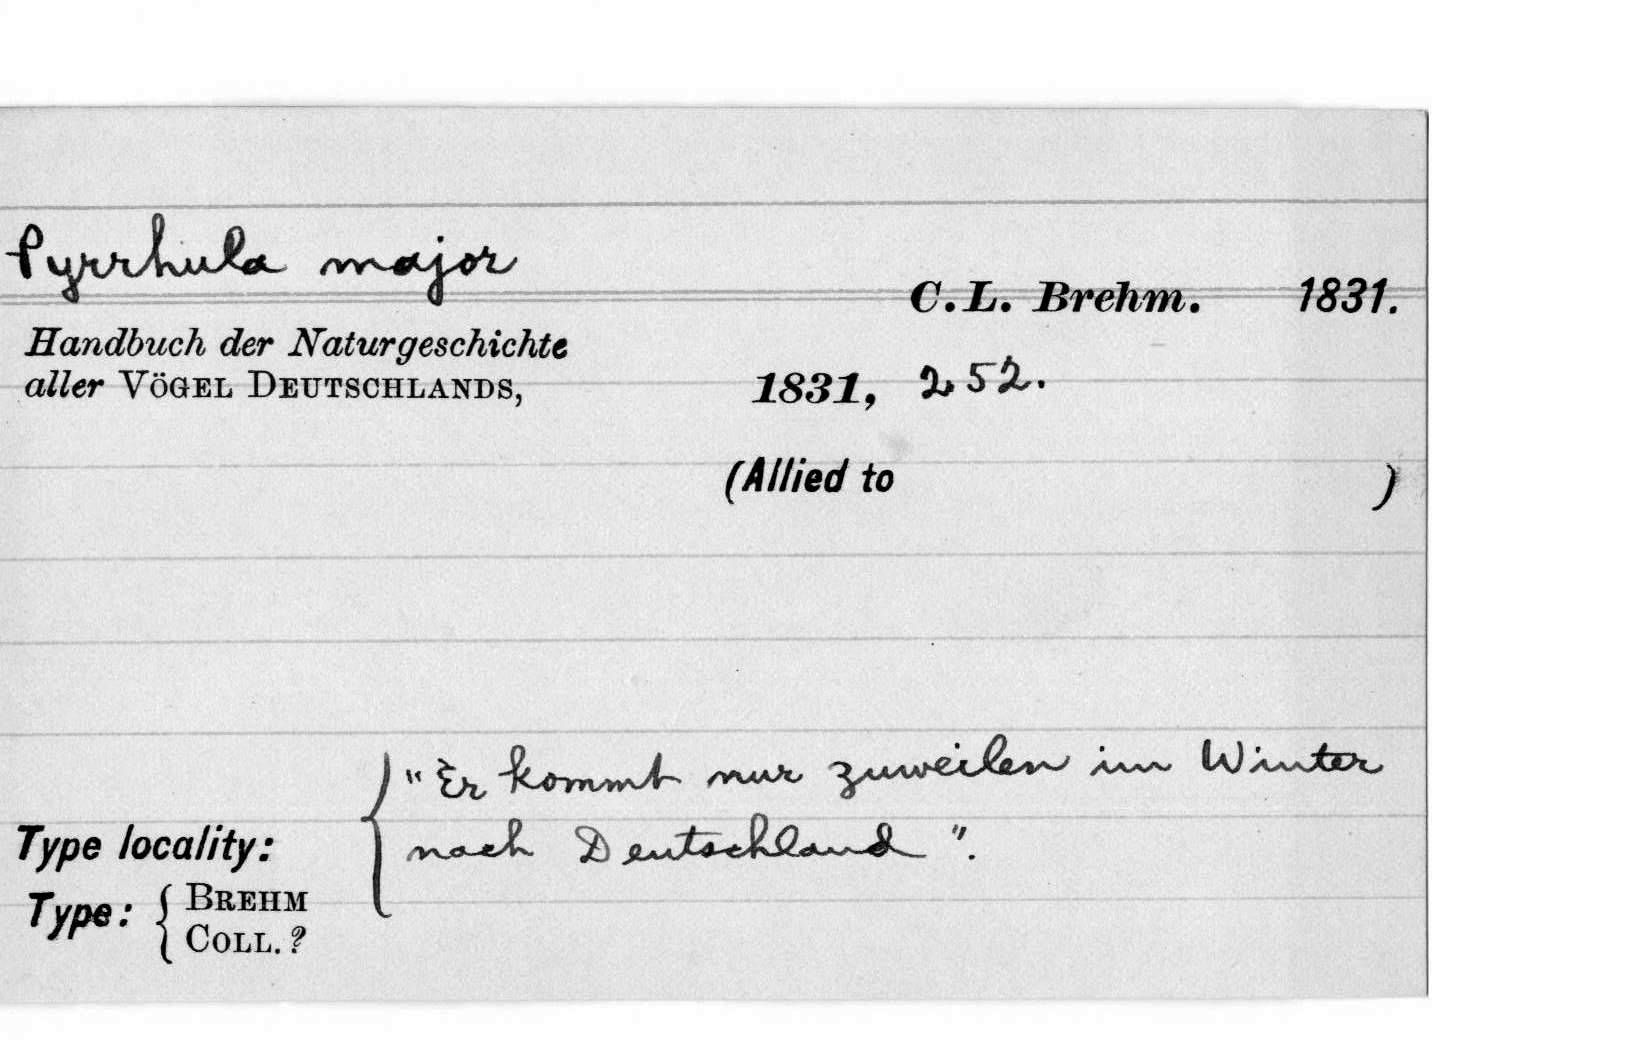 Pyrrhula major
C. L. Brehm. 1831.
Handbuch der Naturgeschichte
aller VÖGEL DEUTSCHLANDS, 1831, 252.
(Allied to )
"Er kommt nur zuweilen im Winter
Type locality: nach Deutschland".
Type: { BREHM
COLL. ?